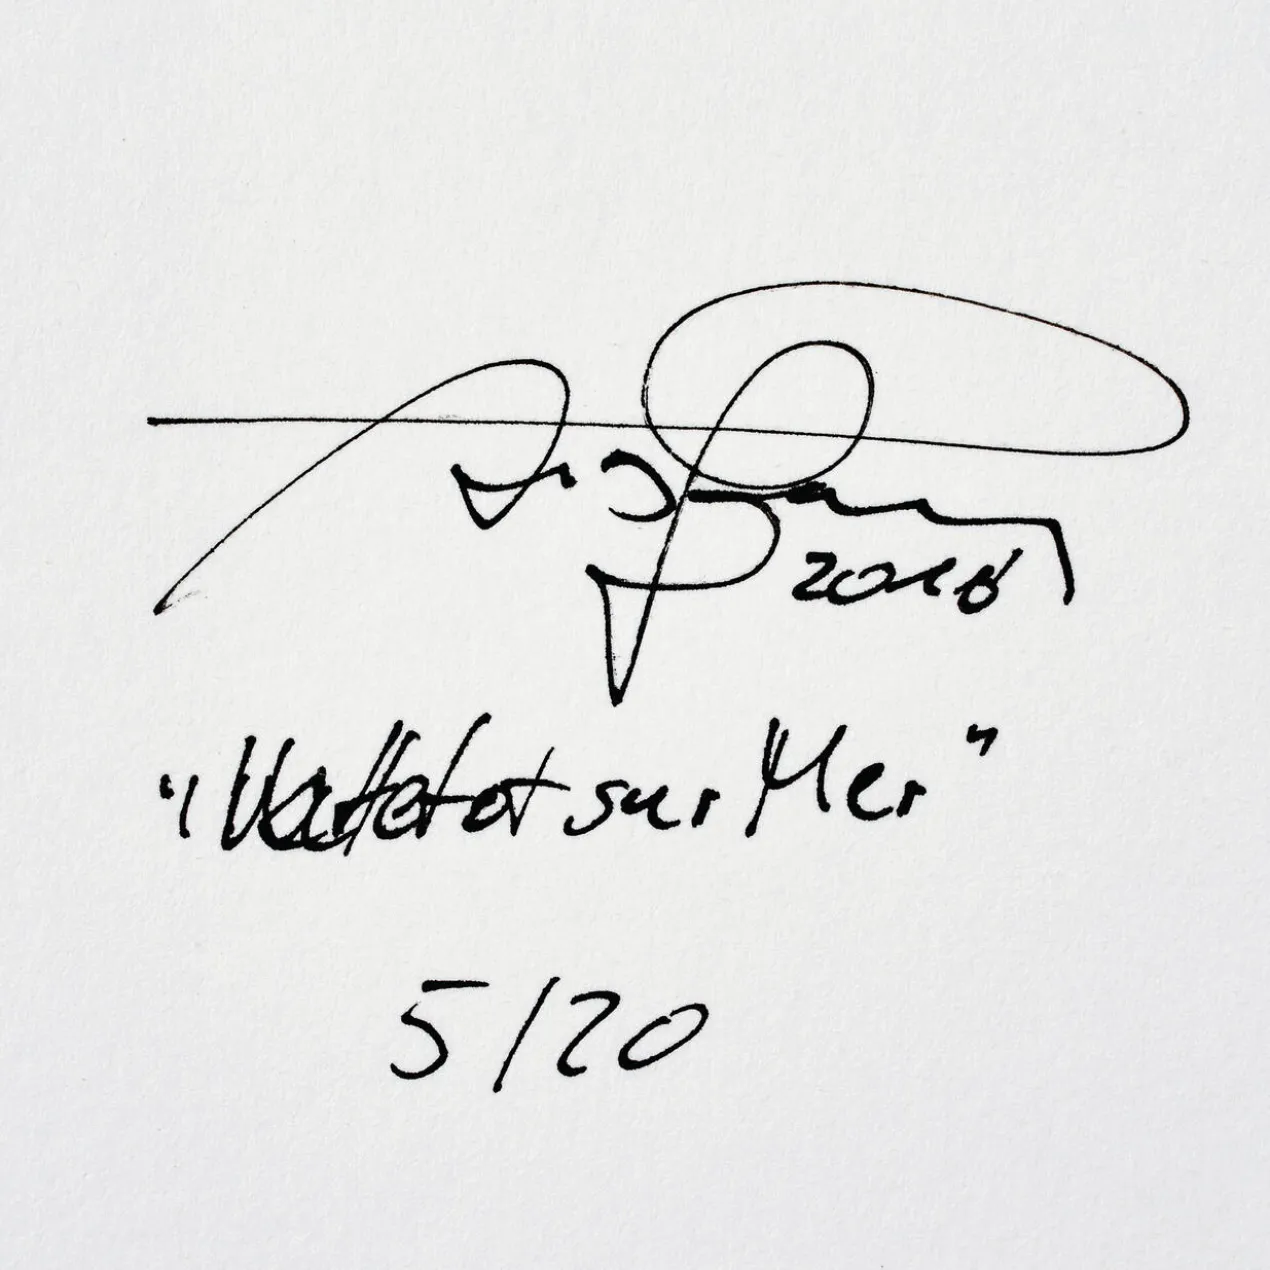 2018
"Vattetot sur Mer"
5/20